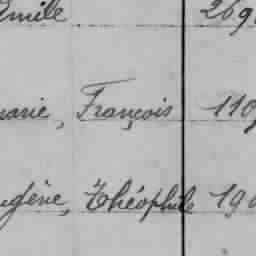 Émile 269
marie, François 110
ugène, Théophile 190